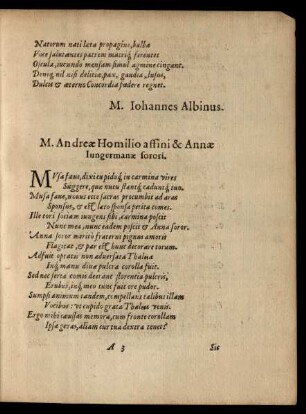 Natorum nati læta propagine, balba
Voce salutantes patrem matremq́; ferentes
Oscula, iucundo mensam simul agmine cingant.
Denq; nil nisi delitiæ, pax, gaudia, lusus,
Dulcis & æterno Concordia fœdere regnet.
M. Iohannes Albinus.
M. Andreæ Homilio affini & Annæ
Iungermanæ sorori.
MVsa faue, dixi cupidoq́; in carmina vires
Suggere, quæ nutu stantq́; caduntq́; tuo.
Musa faue, nouus ecce sacras procumbit ad aras
Sponsus, & est læto sponsa petita comes.
Ille tori sociam iungens sibi, carmina poscit
Nunc mea, nunc eadem poscit & Anna soror.
Anna soror meritò fraterni pignus amoris
Flagitat, & par est hunc decorare torum.
Adfuit optanti non aduersata Thalia
Inq́; manu diuæ pulcra corolla fuit.
Sed nec serta comis deerant florentia pulcris,
Erubui, inq́; meo tunc fuit ore pudor.
Sumpsi animum tandem, compellans talibus illam
Vocibus: ut cupido grata Thalia venis.
Ergo mihi causam memora, cum fronte corollam
Ipsa geras, aliam cur tua dextra tenet?
A 3
Sic